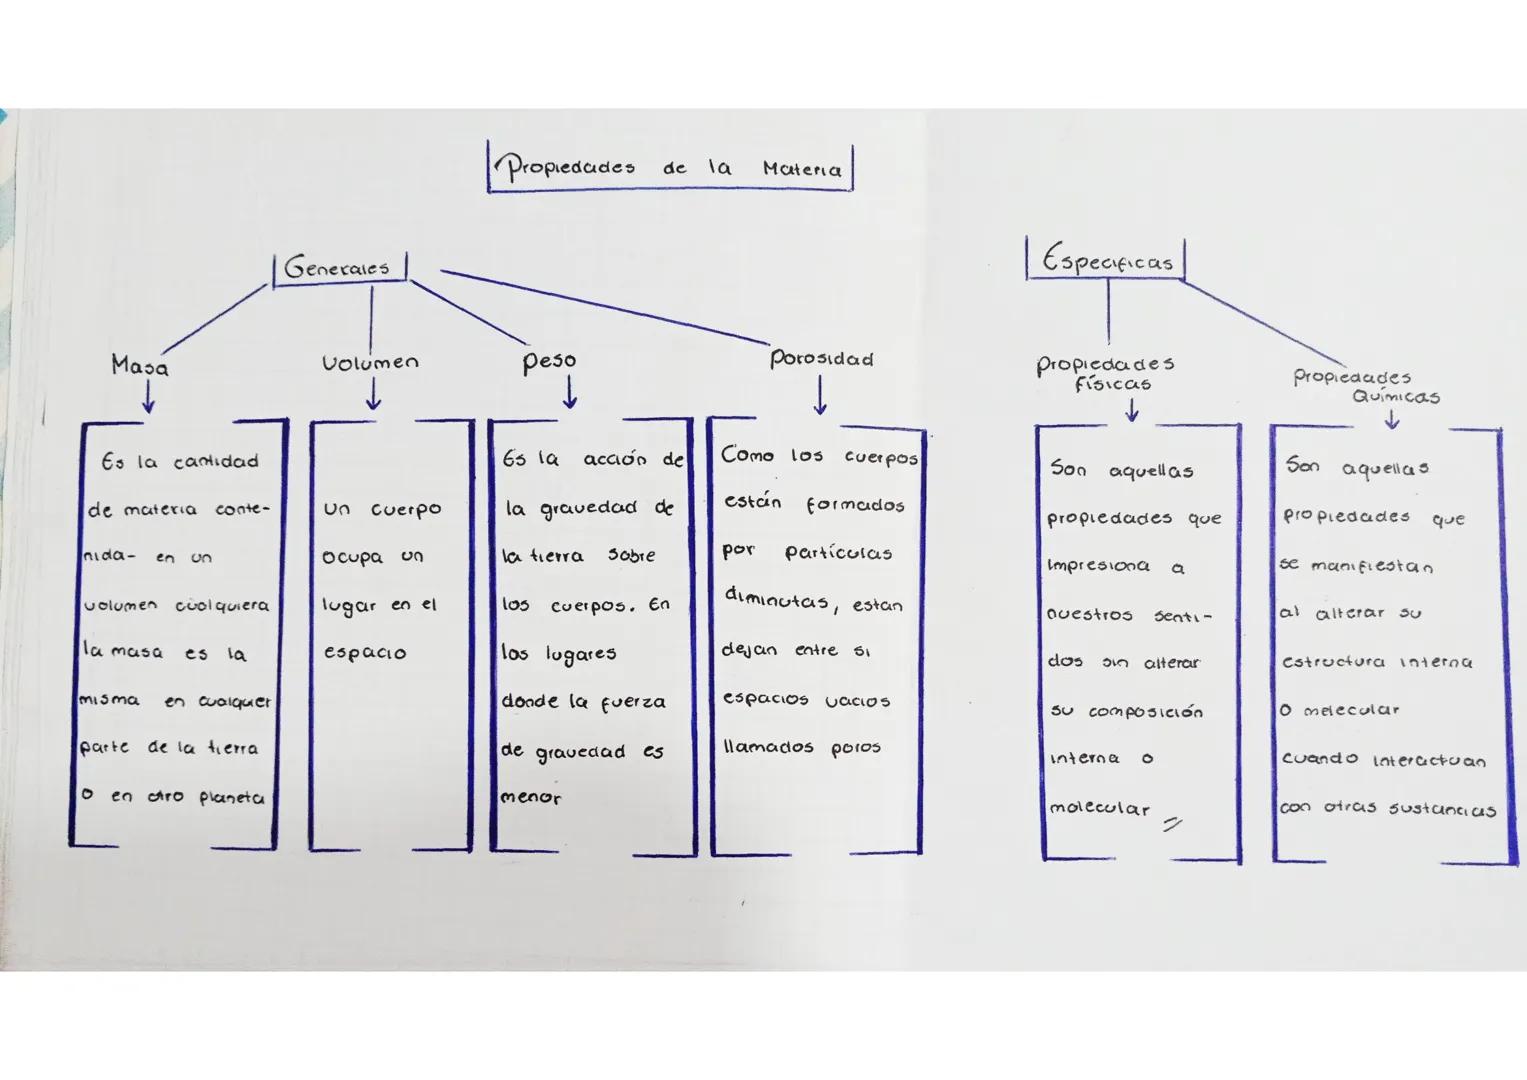 Propiedades de la Materia
Generales
Especificas
Masa
Volumen
Peso
Porosidad
Propiedades
Físicas
Propiedades
Químicas
Es la cantidad
de materia conte-
nida- en un
volumen cualquiera
la masa es la
misma en cualquier
parte de la tierra
o en otro planeta
Un cuerpo
ocupa un
lugar en el
espacio
Es la acción de
la gravedad de
la tierra sobre
los cuerpos. En
los lugares
donde la fuerza
de gravedad es
menor
Como los cuerpos
están formados
por partículas
diminutas, estan
dejan entre si
espacios vacios
llamados poros
Son aquellas
propiedades que
impresiona a
nuestros senti-
dos sin alterar
su composición
interna o
molecular
Son aquellas
propiedades que
se manifiestan
al alterar su
estructura interna
o melecular
cuando interactuan
con otras sustancias